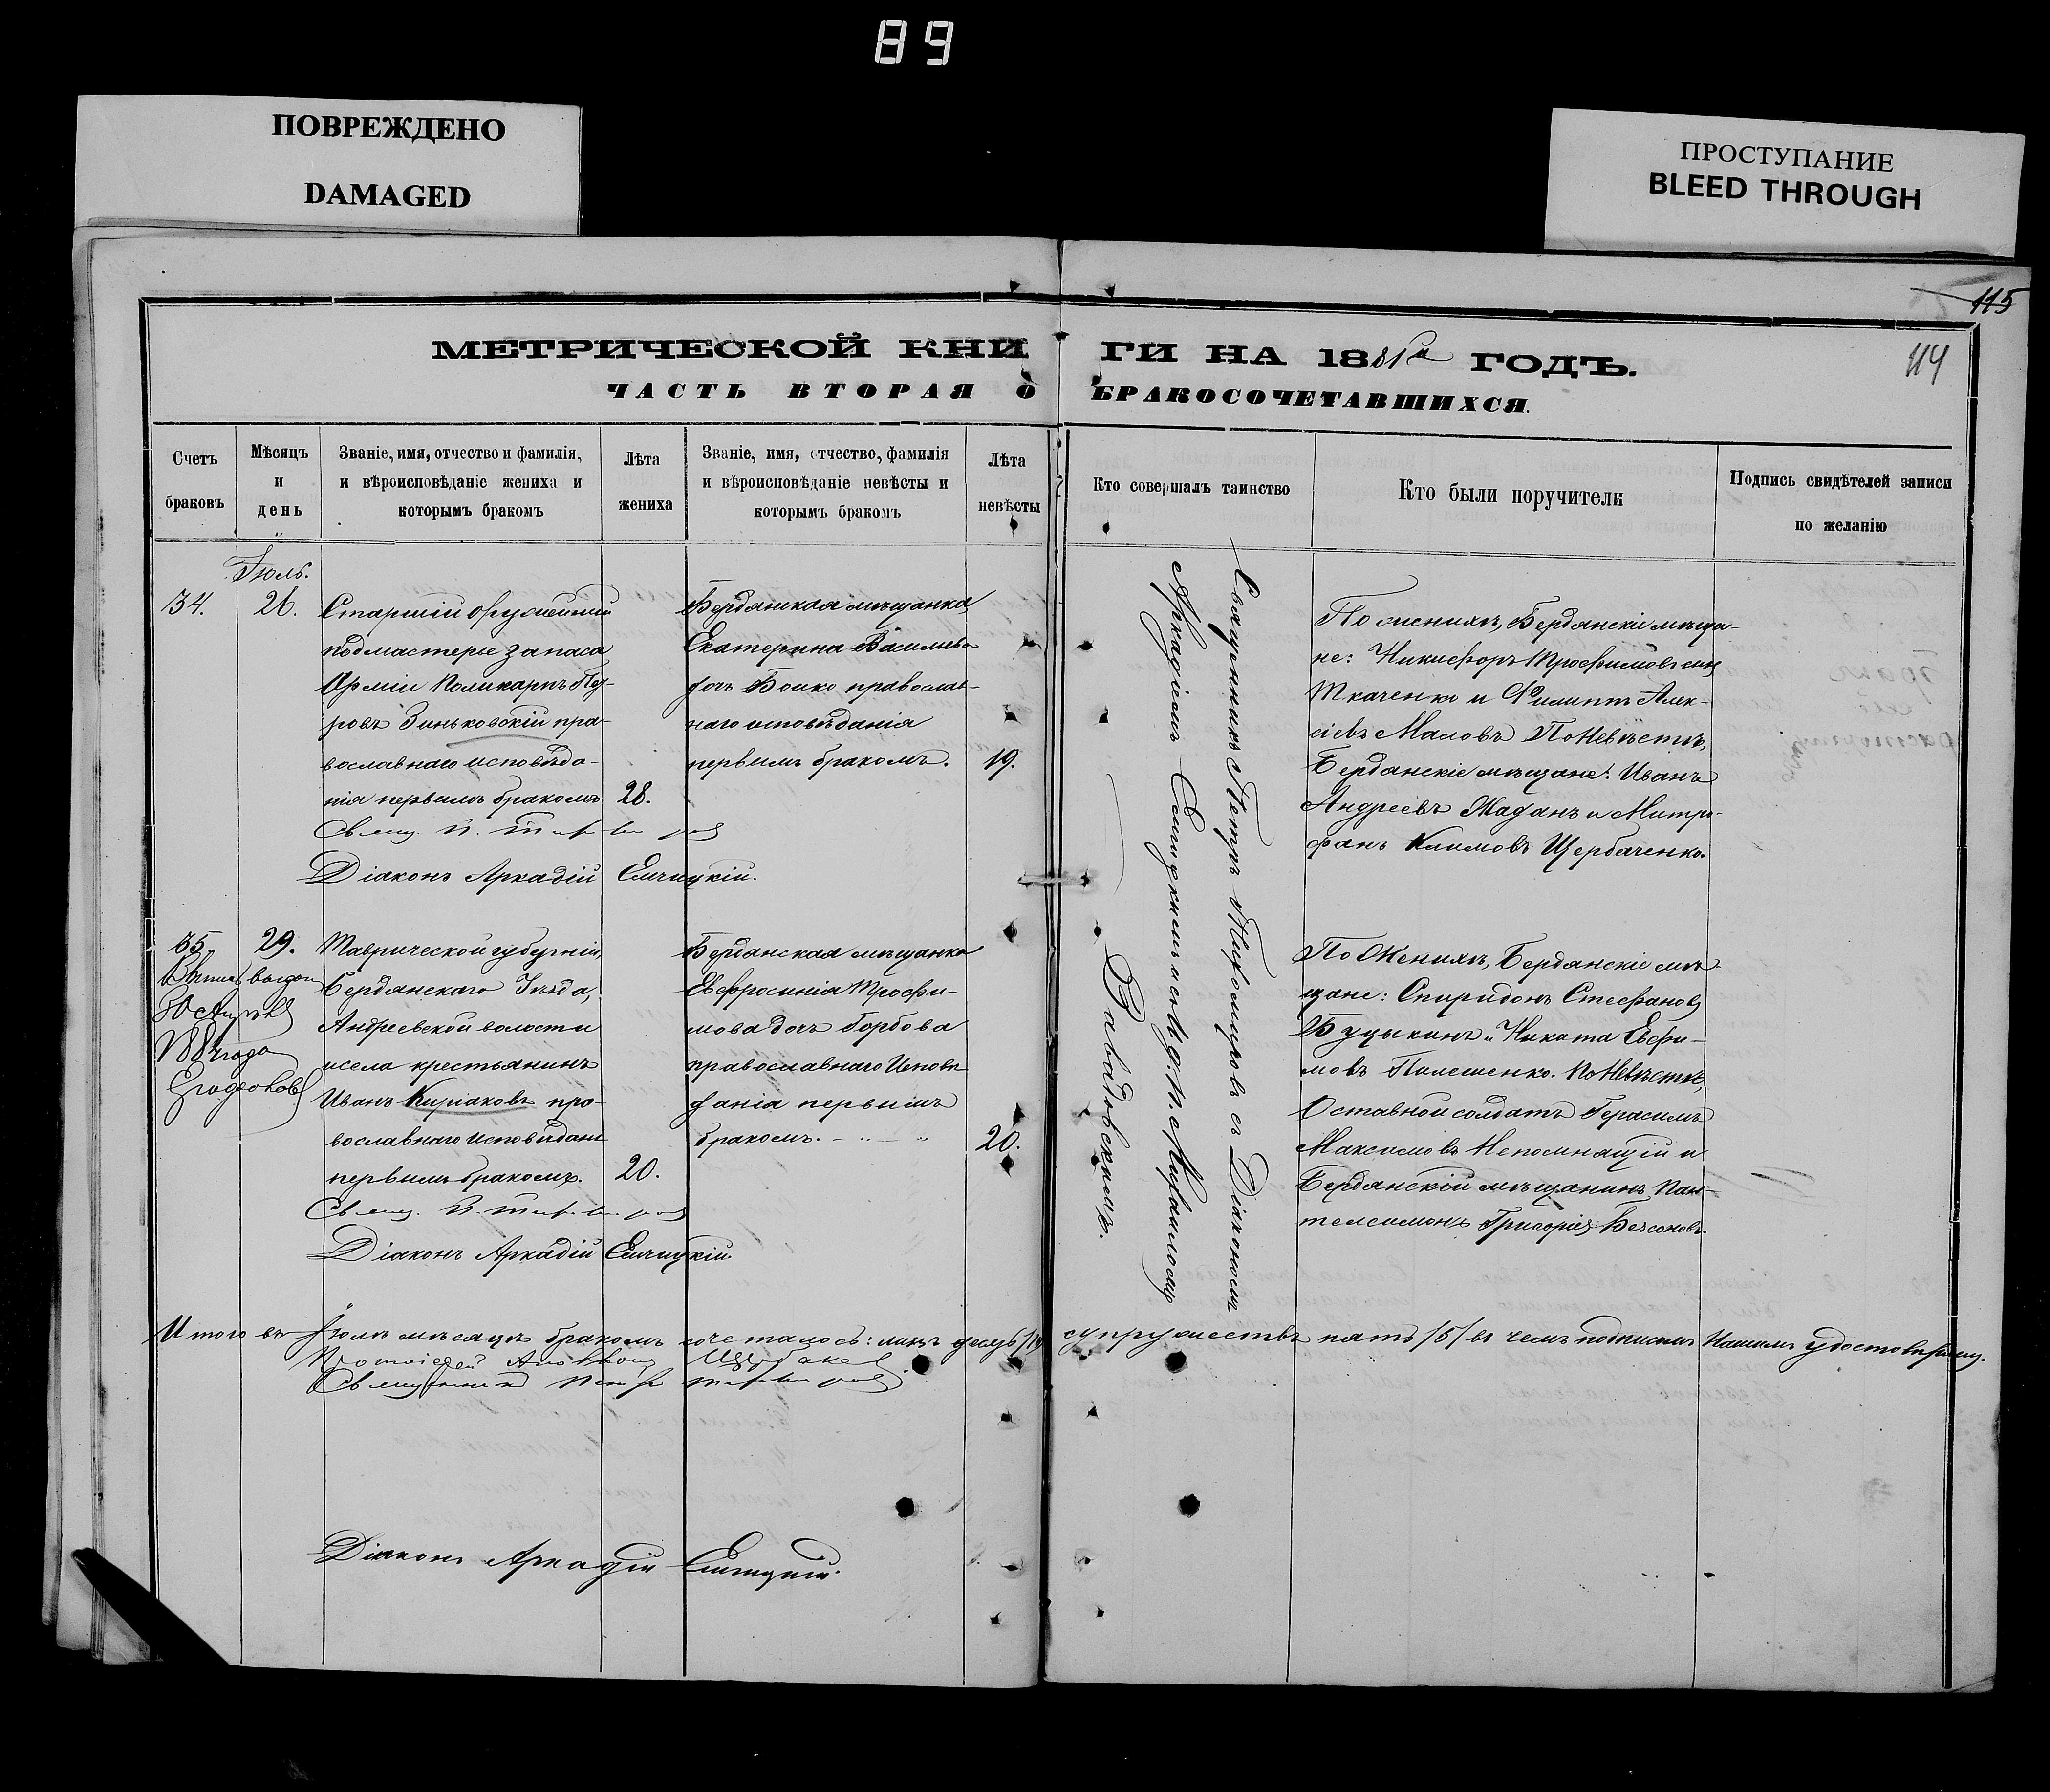 89
ПОВРЕЖДЕНО
DAMAGED
ПРОСТУПАНИЕ
BLEED THROUGH
115
114
МЕТРИЧЕСКОЙ КНИГИ НА 1881й ГОДЪ.
ЧАСТЬ ВТОРАЯ О БРАКОСОЧЕТАВШИХСЯ.
Счетъ
браковъ
Мѣсяцъ
и
день
Званіе, имя, отчество и фамилія,
и вѣроисповѣданіе жениха и
которымъ бракомъ
Лѣта
жениха
Званіе, имя, отчество, фамилія
и вѣроисповѣданіе невѣсты и
которымъ бракомъ
Лѣта
невѣсты
Кто совершалъ таинство
Кто были поручители
Подпись свидѣтелей записи
по желанію
Іюль.
34.
26.
Старшій оружейный
подмастерье запаса
Арміи Поликарпъ Пет-
ровъ Зиньковскій пра-
вославнаго исповѣда-
нія первымъ бракомъ
28.
Бердянская мѣщанка
Екатерина Васильева
дочь Бойко православ-
наго исповѣданія
первымъ бракомъ.
19.
Діаконъ Аркадій Емчицкій.
Священникъ Петръ Тихомировъ съ Діакономъ
Аркадіемъ Емчицкимъ
По женихѣ, Бердянскіе мѣща-
не: Никифоръ Трофимовъ сынъ
Ткаченко и Филиппъ Алек-
сіевъ Маловъ По Невѣстѣ,
Бердянскіе мѣщане: Иванъ
Андреевъ Жаданъ и Митро-
фанъ Климовъ Щербаченко.
35.
29.
выдана
Таврической губерніи,
Бердянскаго Уѣзда,
Андреевской волости
и села крестьянинъ
Иванъ Киріаковъ пра-
вославнаго исповѣдані
первымъ бракомъ.
20.
Бердянская мѣщанка
Евфросинія Трофи-
мова дочь Горбова
православнаго Исповѣ-
данія первымъ
бракомъ.
20.
Діаконъ Аркадій Емчицкій.
По Женихѣ, Бердянскіе мѣ-
щане: Спиридонъ Стефановъ
Буцыкинъ и Никита Ефи-
мовъ Палешенко. По Невѣстѣ,
Оставной солдатъ Герасимъ
Максимовъ Непомнящій и
Бердянскій мѣщанинъ Пан-
телеимонъ Григоріевъ Безсоновъ.
Итого въ Іюлѣ мѣсяцѣ бракомъ сочеталось: лицъ десять /10/ супружествъ пять /5/ въ чемъ подписомъ Нашимъ удостовѣряемъ.
Священникъ Петръ Тихомировъ
Діаконъ Аркадій Емчицкій.